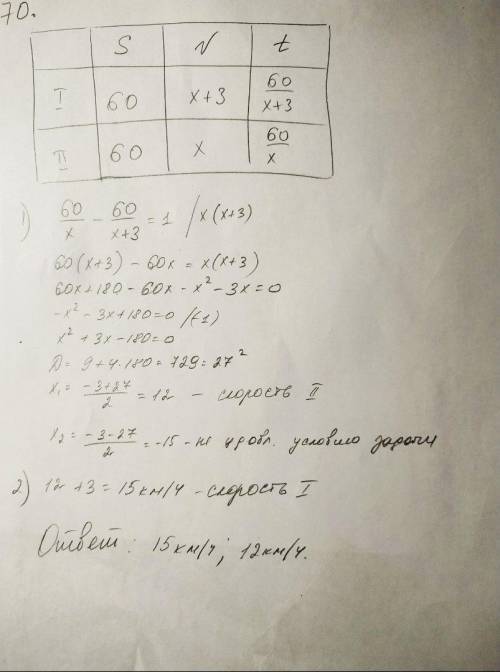 70.
S V t
I 60 x+3 60/(x+3)
II 60 x 60/x
1) 60/x - 60/(x+3) = 1 / x(x+3)
60(x+3) - 60x = x(x+3)
60x+180-60x-x²-3x=0
-x²-3x+180=0 /(-1)
x²+3x-180=0
D=9+4·180=729=27²
x₁= (-3+27)/2 = 12 - скорость II
x₂= (-3-27)/2 = -15 - не удовл. условию задачи
2) 12+3=15км/ч - скорость I
Ответ: 15км/ч; 12км/ч.